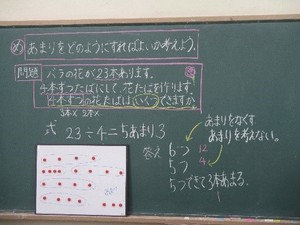 め あまりをどのようにすればよいか考えよう。
問題
バラの花が23本あります。
4本ずつたばにして、花たばを作ります。
4本ずつの花たばは、いくつできますか
3本× 3本×
式 23÷4=5あまり3
あまりをなくす
あまりを考えない。
答え 6つ 12
5つ 4
5つできて3本あまる。